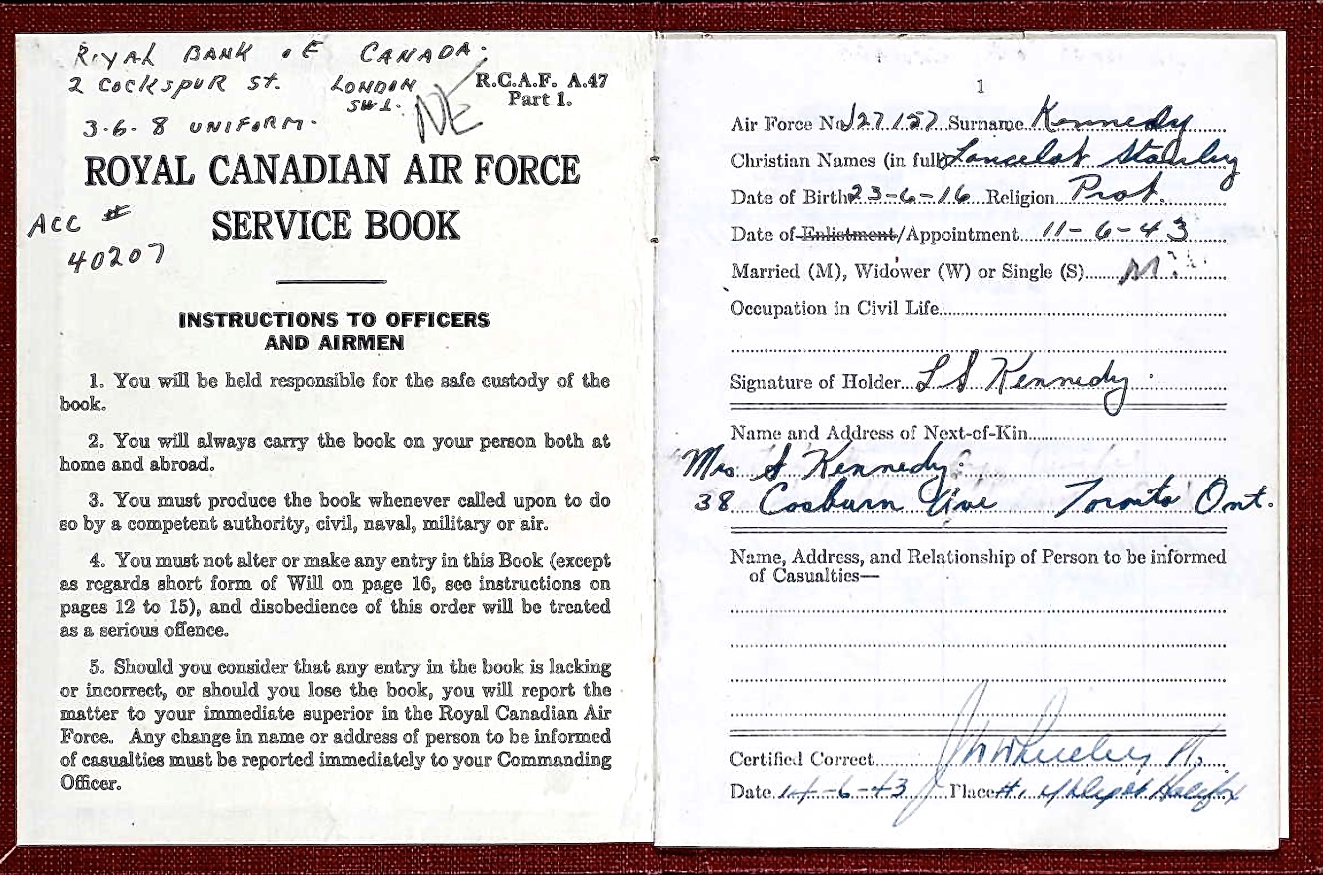 ROYAL BANK OF CANADA.
2 COCKSPUR St. LONDON
SW1.
R.C.A.F. A.47
Part 1.
NE
3-6-8 UNIFORM.
ROYAL CANADIAN AIR FORCE
SERVICE BOOK
ACC #
40207
INSTRUCTIONS TO OFFICERS
AND AIRMEN
1. You will be held responsible for the safe custody of the
book.
2. You will always carry the book on your person both at
home and abroad.
3. You must produce the book whenever called upon to do
so by a competent authority, civil, naval, military or air.
4. You must not alter or make any entry in this Book (except
as regards short form of Will on page 16, see instructions on
pages 12 to 15), and disobedience of this order will be treated
as a serious offence.
5. Should you consider that any entry in the book is lacking
or incorrect, or should you lose the book, you will report the
matter to your immediate superior in the Royal Canadian Air
Force. Any change in name or address of person to be informed
of casualties must be reported immediately to your Commanding
Officer.
1
Air Force No. J27157 Surname Kennedy
Christian Names (in full) Lancelot Stanley
Date of Birth 23-6-16 Religion Prot.
Date of Enlistment/Appointment 11-6-43
Married (M), Widower (W) or Single (S) M
Occupation in Civil Life
Signature of Holder L S Kennedy
Name and Address of Next-of-Kin
Mrs S Kennedy
38 Cosburn Ave Toronto Ont.
Name, Address, and Relationship of Person to be informed
of Casualties—
Certified Correct
Date 14-6-43 Place #1 Y Depot Halifax